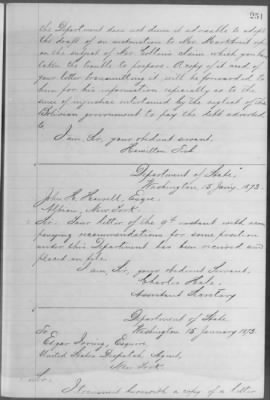 251
the Department does not deem it advisable to adopt
the draft of an instruction to Mr. Markbreit up
on the subject of Mr. Collins' claim which you have
taken the trouble to prepare. A copy of it and of
your letter transmitting it will be forwarded to
him for his information especially as to the
sense of injustice entertained by the neglect of the
Bolivian government to pay the debt adverted
to.
I am, Sir, your obedient servant.
Hamilton Fish
Department of State,
Washington, 15 Jany. 1873.
John H. Howell, Esqre.
New York.
Sir: Your letter of the 9th instant with accom
panying recommendations for some position
under this Department has been received and
placed on file.
I am, Sir, your obedient Servant,
Charles Hale,
Assistant Secretary
Department of State
Washington 15 January 1873.
To
Edgar Irving, Esquire
United States Dispatch Agent,
New York.
Sir:
I transmit herewith a copy of a letter